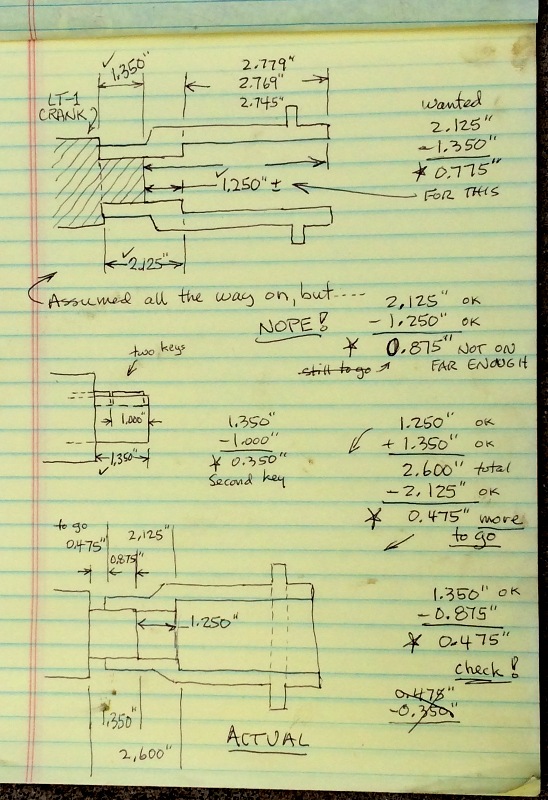 ✓
1.350"
2.779"
2.769"
2.745"
LT-1
CRANK
wanted
2.125"
-1.350"
* 0.775"
FOR THIS
✓ 1.250" ±
✓ 2.125"
Assumed all the way on, but----
NOPE!
2.125" OK
- 1.250" OK
* 0.875" NOT ON
FAR ENOUGH
still to go
two keys
1.000"
1.350"
✓
1.350"
-1.000"
* 0.350"
Second key
1.250" OK
+ 1.350" OK
2.600" total
- 2.125" OK
* 0.475" more
to go
to go
0.475"
2.125"
0.875"
1.250"
1.350"
2.600"
ACTUAL
1.350" OK
-0.875"
* 0.475"
check!
0.475"
-0.350"